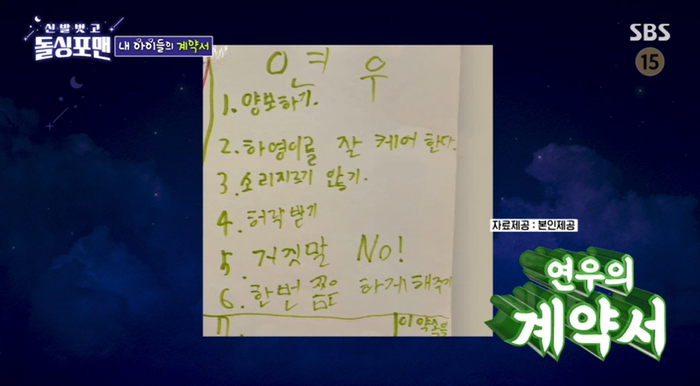 신발벗고
돌싱포맨
내 아이들의 계약서
SBS
15
연우
1. 양보하기.
2. 하영이를 잘 케어 한다.
3. 소리지르기 않기.
4. 허락 받기
5. 거짓말 No!
6. 한번 쯤은 하게 해주기
이 약속을
자료제공 : 본인제공
연우의
계약서